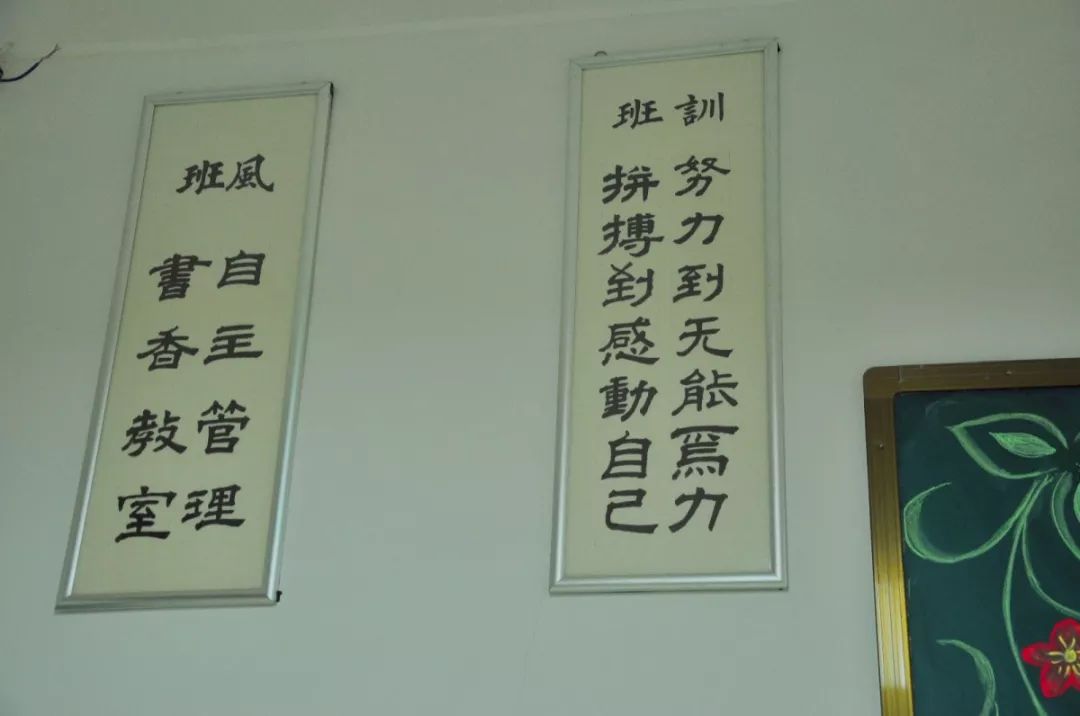 班風
自主管理
書香教室
班訓
努力到无能為力
拼搏到感動自己